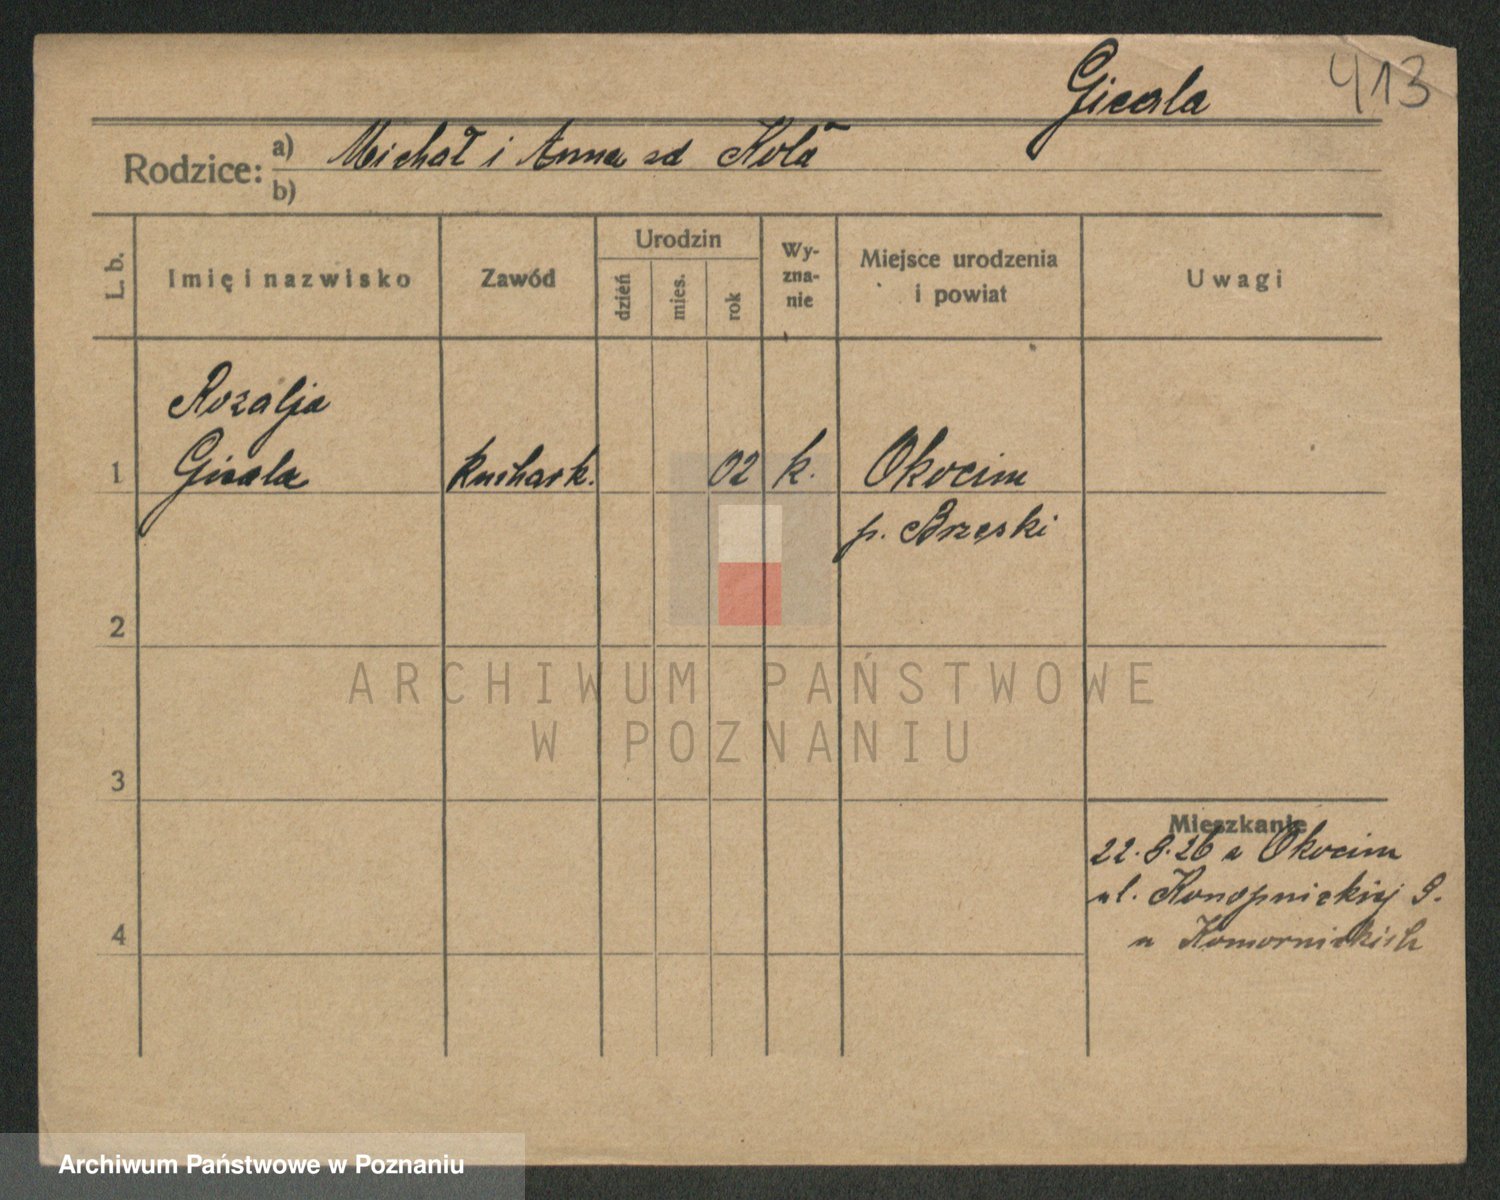 Gicala 413
Rodzice: a) Michał i Anna zd Kola
b)
L. b. Imię i nazwisko Zawód Urodzin dzień mies. rok Wy-zna-nie Miejsce urodzenia i powiat Uwagi
Rozalja
1 Gicala kuchark. 02 k. Okocim
p. Brzeski
2
3
4
Mieszkanie
22.8.26 z Okocim
ul. Konopnickiej 9.
u Komornickich
ARCHIWUM PAŃSTWOWE
W POZNANIU
Archiwum Państwowe w Poznaniu